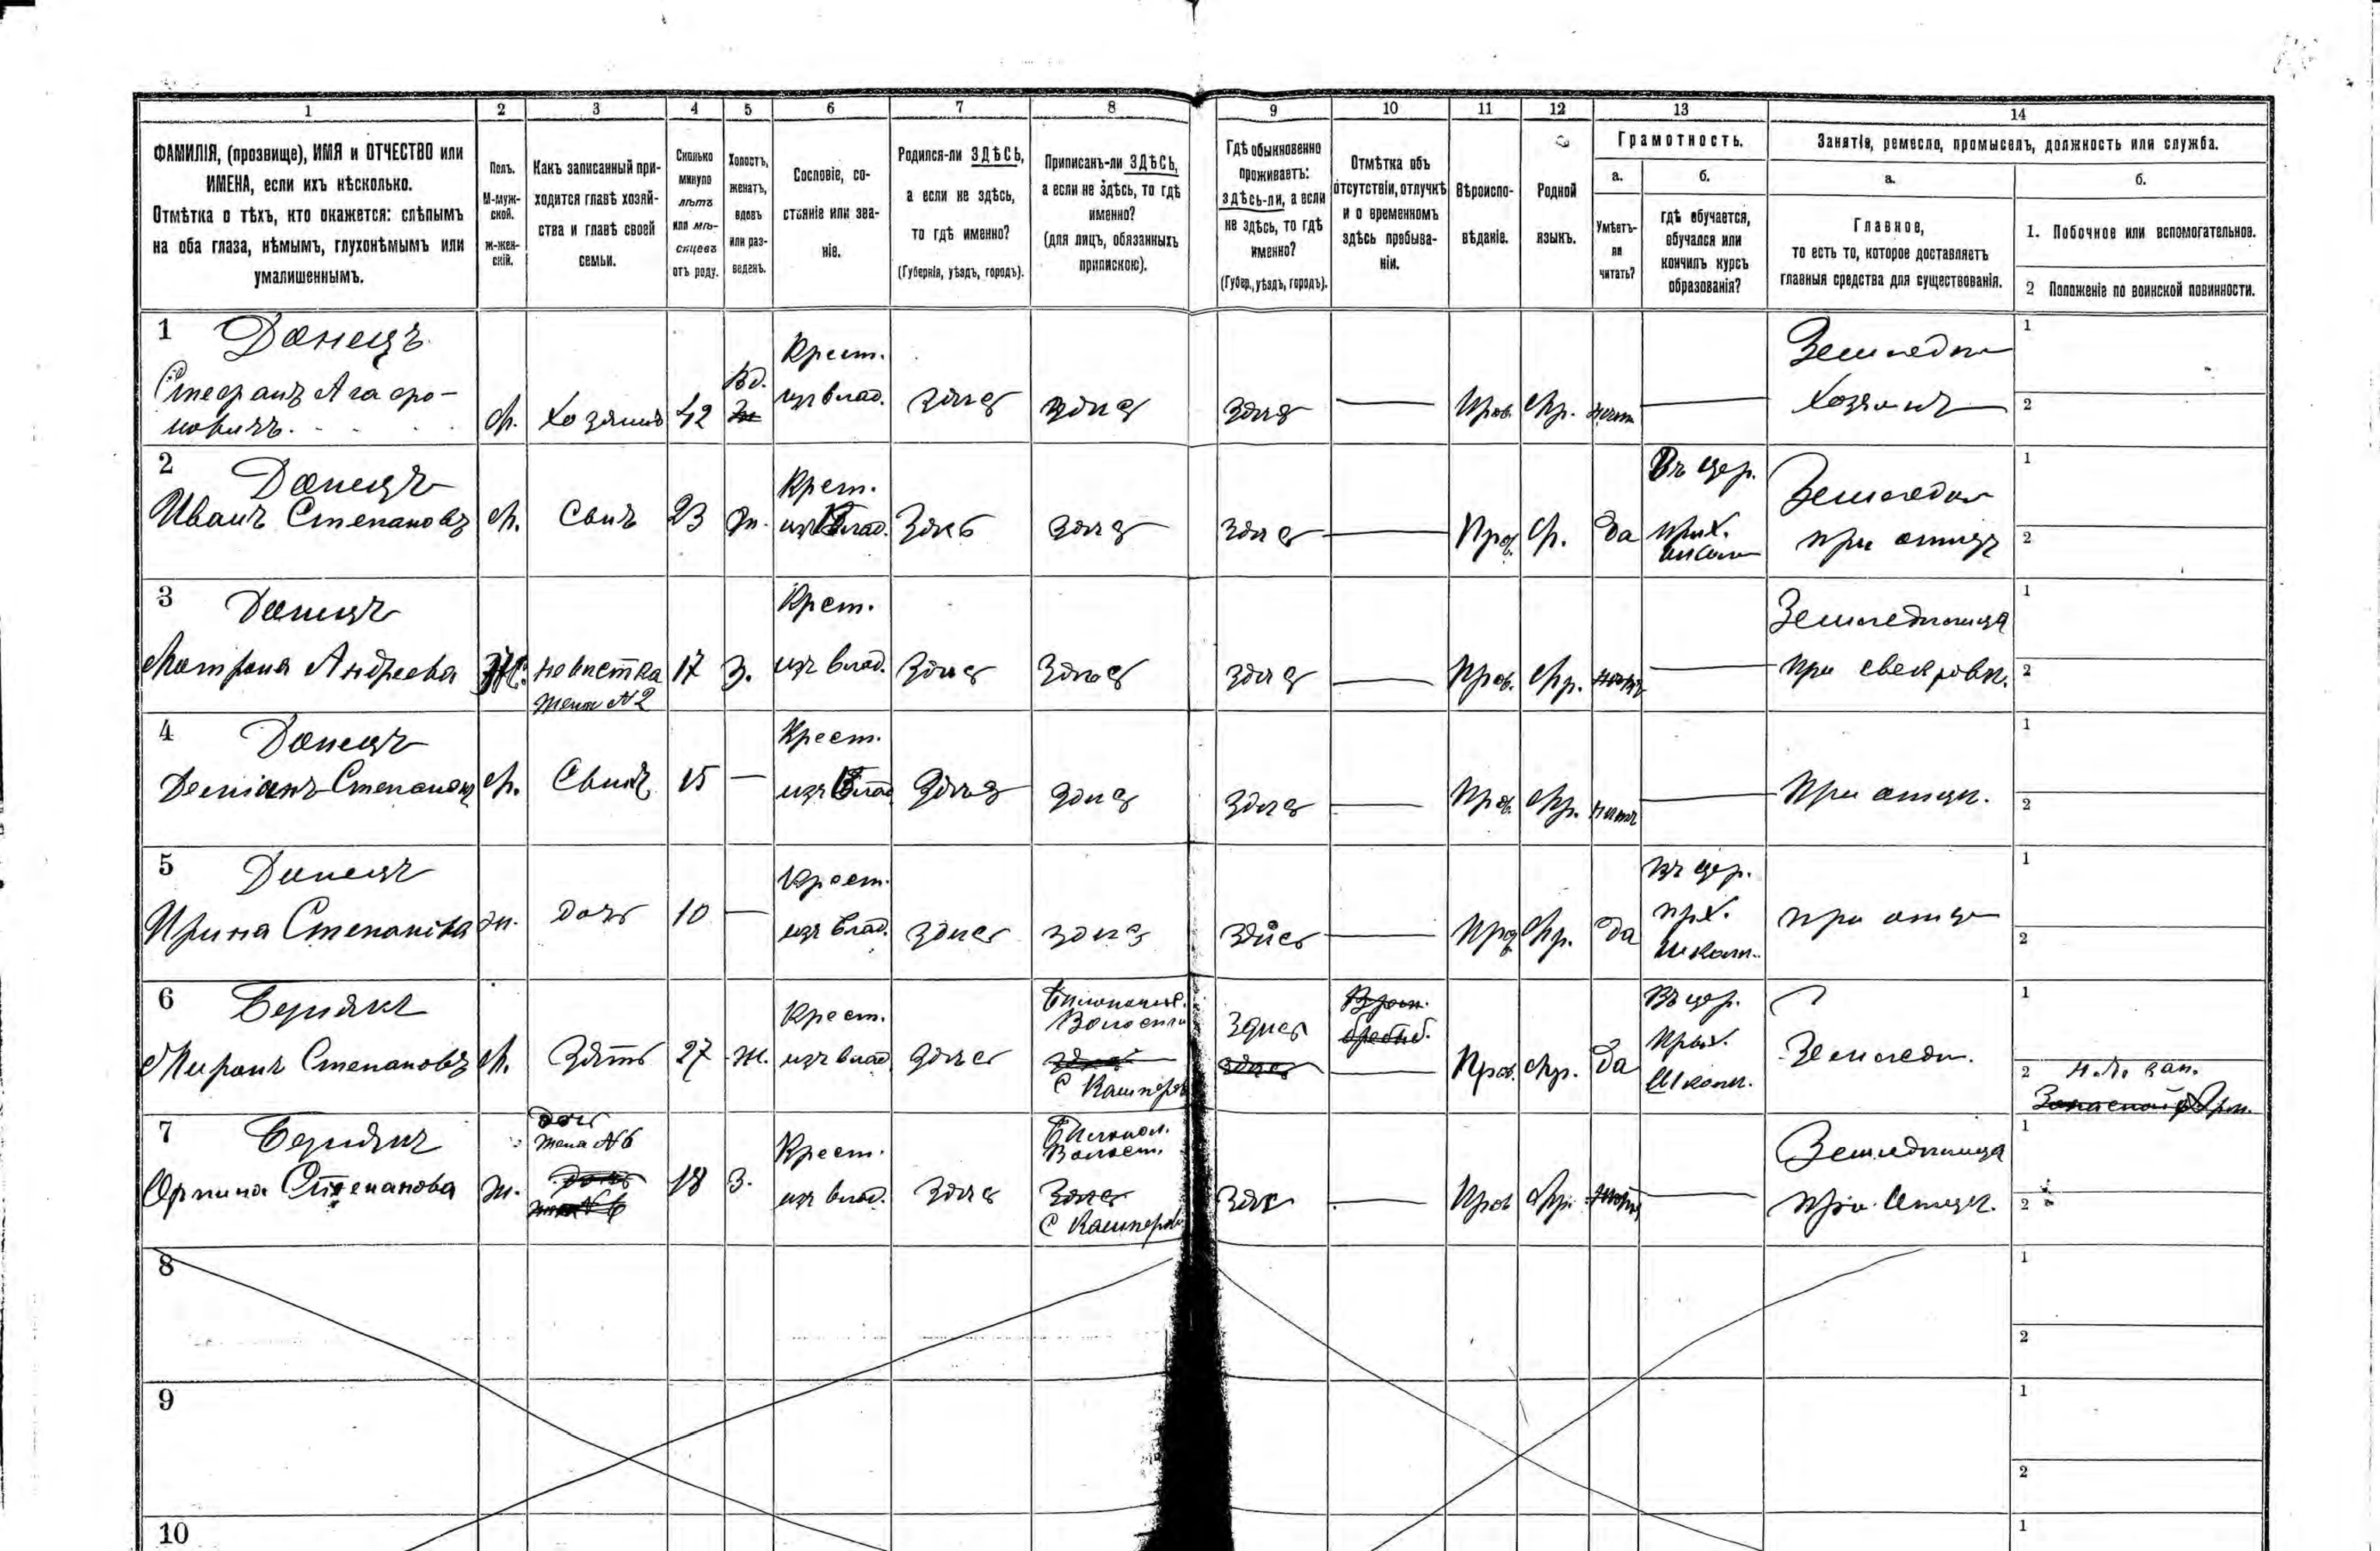 1 2 3 4 5 6 7 8 9 10 11 12 13 14
ФАМИЛІЯ, (прозвище), ИМЯ и ОТЧЕСТВО или
ИМЕНА, если ихъ нѣсколько.
Отмѣтка о тѣхъ, кто окажется: слѣпымъ
на оба глаза, нѣмымъ, глухонѣмымъ или
умалишеннымъ.
Полъ.
М-муж-
ской.
ж-жен-
скій.
Какъ записанный при-
ходится главѣ хозяй-
ства и главѣ своей
семьи.
Сколько
минуло
лѣтъ
или мѣ-
сяцевъ
отъ роду.
Холостъ,
женатъ,
вдовъ
или раз-
веденъ.
Сословіе, со-
стояніе или зва-
ніе.
Родился-ли ЗДѢСЬ,
а если не здѣсь,
то гдѣ именно?
(Губернія, уѣздъ, городъ).
Приписанъ-ли ЗДѢСЬ,
а если не здѣсь, то гдѣ
именно?
(для лицъ, обязанныхъ
припискою).
Гдѣ обыкновенно
проживаетъ:
здѣсь-ли, а если
не здѣсь, то гдѣ
именно?
(Губер., уѣздъ, городъ).
Отмѣтка объ
отсутствіи, отлучкѣ
и о временномъ
здѣсь пребыва-
ніи.
Вѣроиспо-
вѣданіе.
Родной
языкъ.
Грамотность.
а.
Умѣетъ-
ли
читать?
б.
гдѣ обучается,
обучался или
кончилъ курсъ
образованія?
Занятія, ремесло, промыселъ, должность или служба.
а.
Главное,
то есть то, которое доставляетъ
главныя средства для существованія.
б.
1. Побочное или вспомогательное.
2 Положеніе по воинской повинности.
1 Донецъ
Стефанъ Агафо-
новичъ.
М. Хозяинъ 42 Вд.
Крест.
изъ влад.
здѣсь здѣсь здѣсь — Прав. Мр. нѣтъ —
Земледѣл.
Хозяинъ
1
2
2 Донецъ
Иванъ Степановъ
М. Сынъ 23 Ж.
Крест.
изъ Влад.
Здѣсь здѣсь здѣсь — Прав. М. Да
Въ цер.
прих.
школ.
Земледѣл.
при отцѣ
1
2
3 Донецъ
Матрона Андреева
Ж. невѣстка
жена №2
17 З.
Крест.
изъ влад.
Здѣсь Здѣсь здѣсь — Прав. Мр. нѣтъ —
Земледѣлица
при свекровѣ.
1
2
4 Донецъ
Деміанъ Степановъ
М. Сынъ 15 —
Крест.
изъ Влад
Здѣсь здѣсь здѣсь — Прав. Мр. нѣтъ —
При отцѣ.
1
2
5 Донецъ
Ирина Степанова
ж. дочь 10 —
Крест.
изъ влад.
здѣсь здѣсь здѣсь — Прав Мр. да
Въ цер.
прих.
Школ.
при отцѣ
1
2
6
Миронъ Степановъ
М. Зять 27 Ж.
Крест.
изъ влад
здѣсь
Волости
здѣсь
С Кашперов
Здѣсь
здѣсь
— Прав. Мр. Да
Въ цер.
Прих.
Школ.
Земледѣл.
1
2
7
Степанова
ж.
дочь
жена №6
дочь
жена №6
18 З.
Крест.
изъ влад.
здѣсь
Волост.
Здѣсь
С Кашперов
Здѣсь — Прав Мр. нѣтъ —
Земледѣлица
при Отцѣ.
1
2
8
1
2
9
1
2
10
1